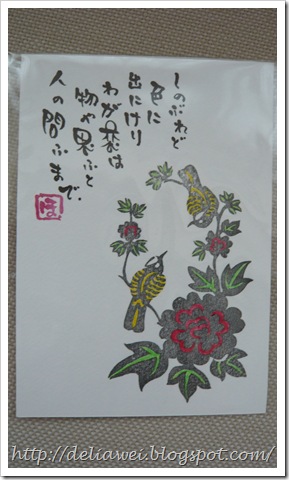 しのぶれど
色に
出にけり
わが恋は
物や思ふと
人の問ふまで
http://deliawei.blogspot.com/